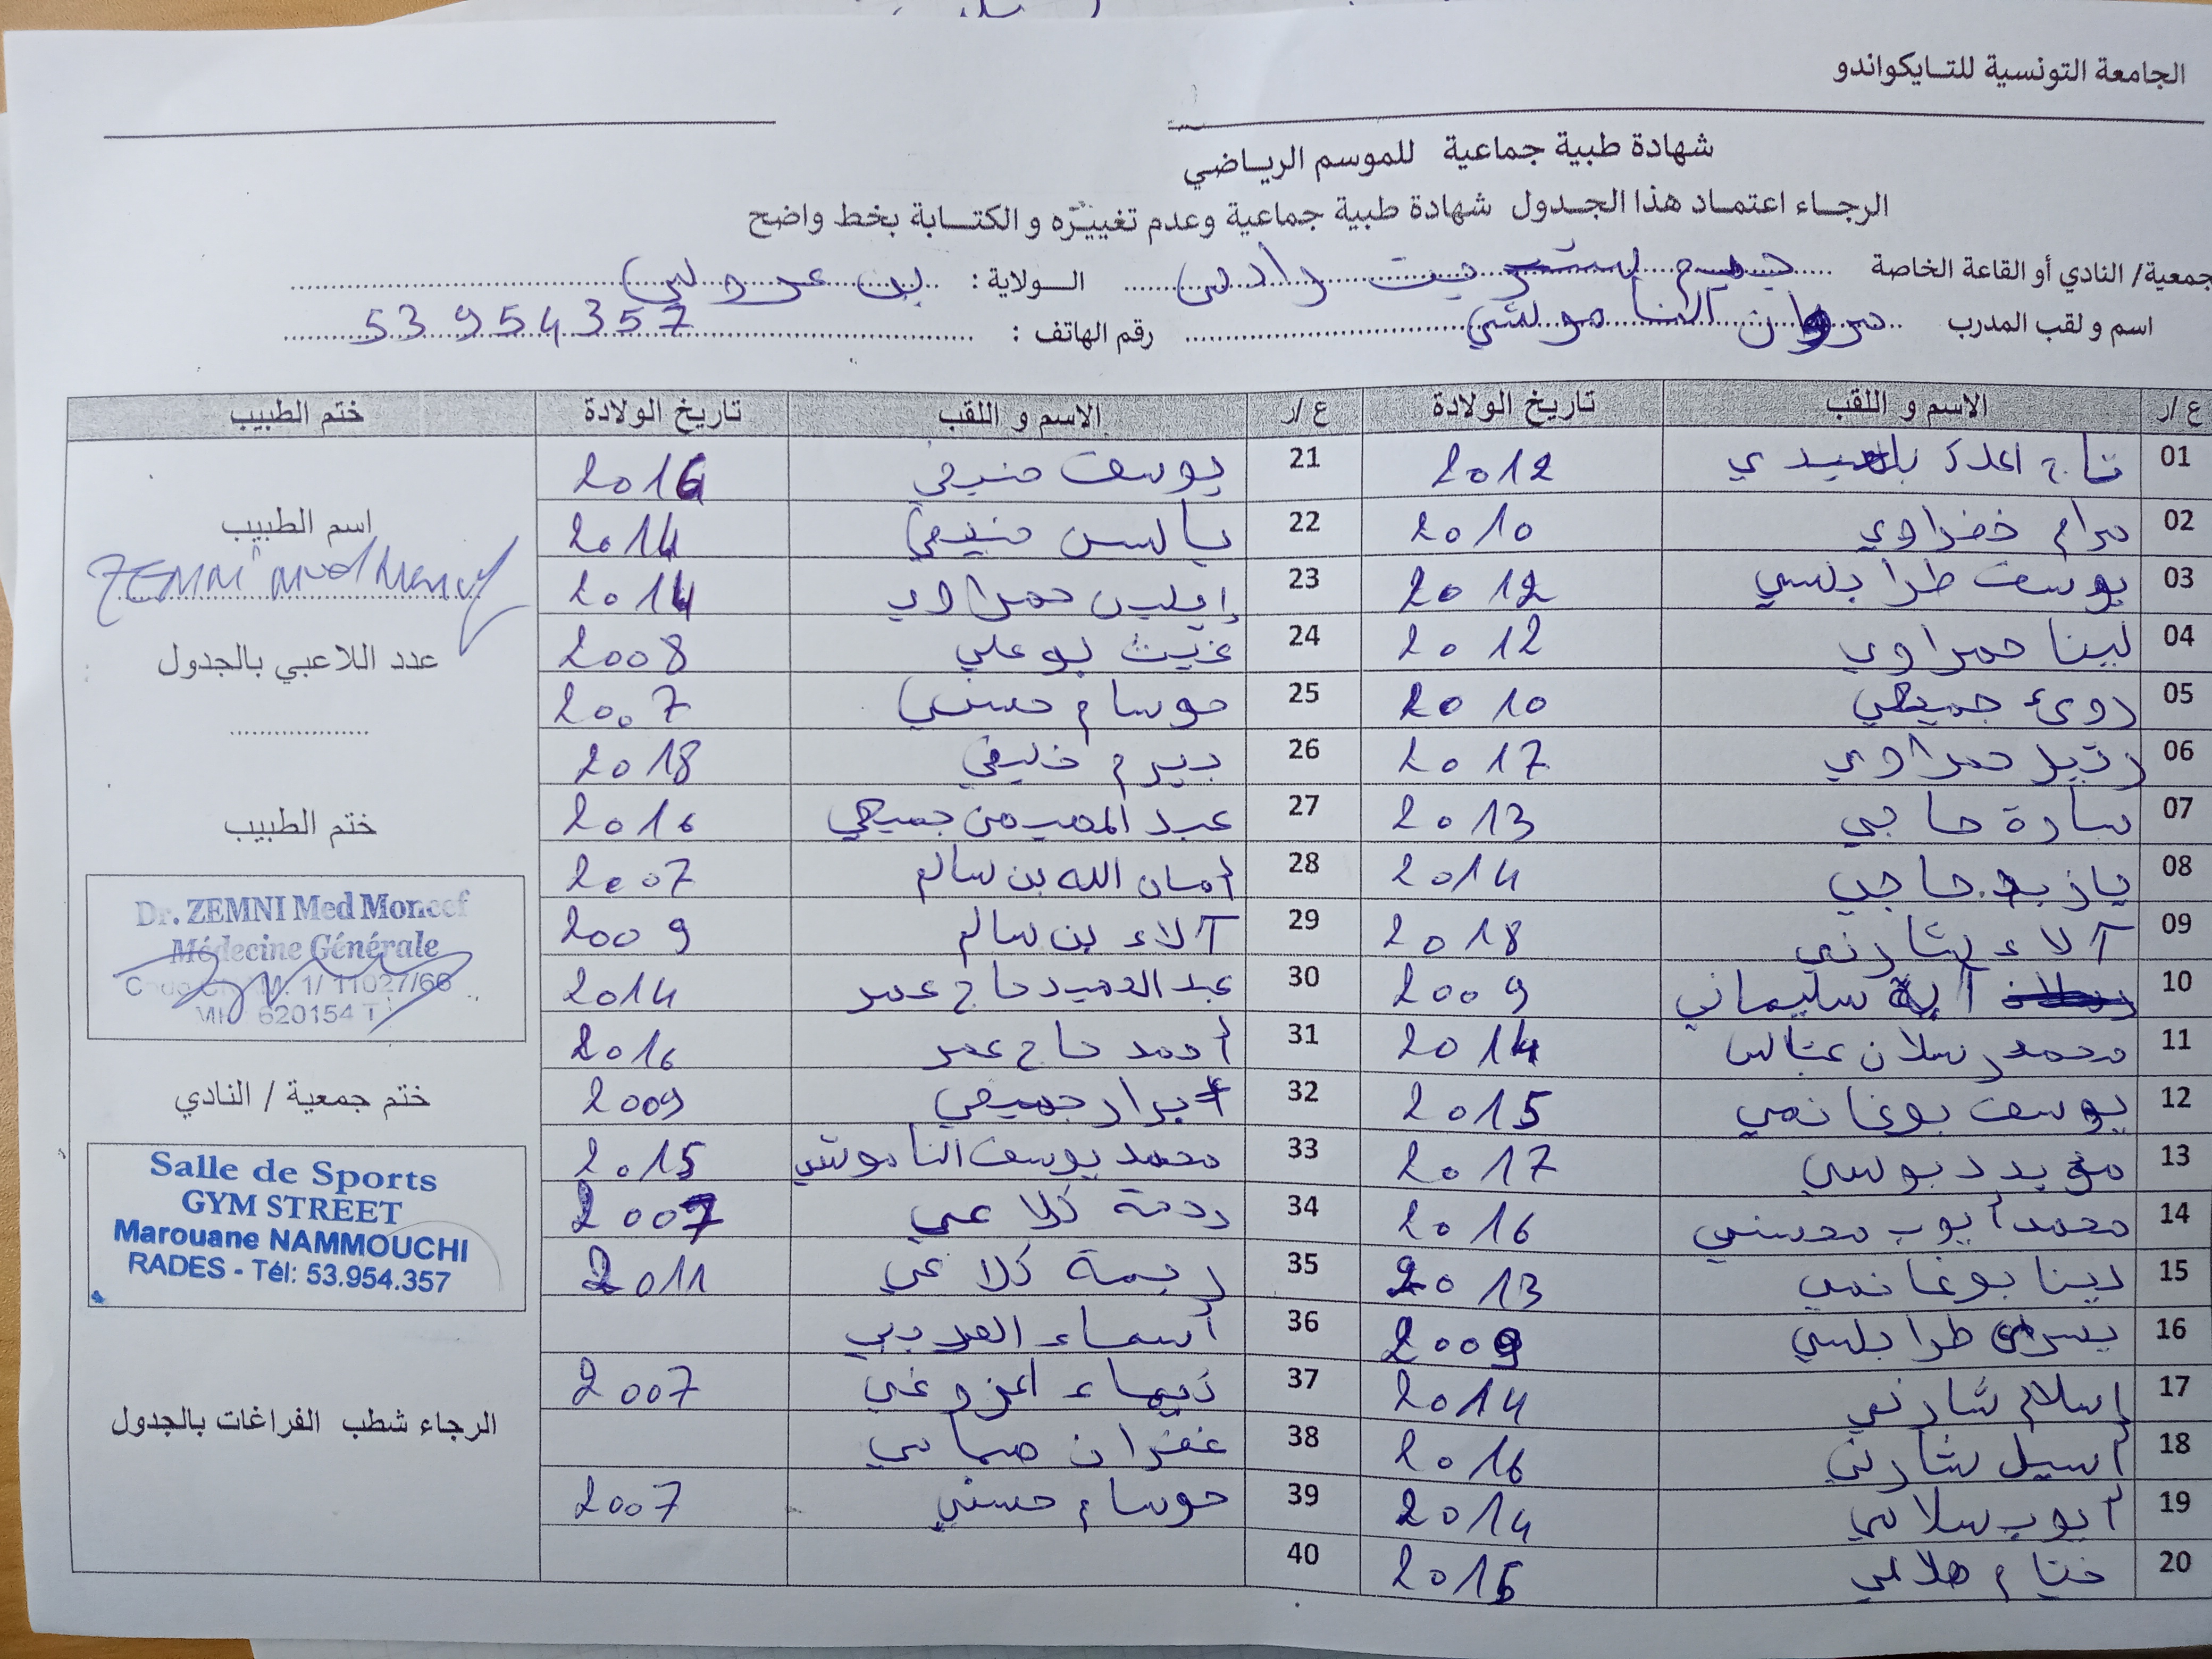 الجامعة التونسية للتايكواندو
شهادة طبية جماعية للموسم الرياضي
الرجاء اعتماد هذا الجدول شهادة طبية جماعية وعدم تغييره و الكتابة بخط واضح
جمعية/ النادي أو القاعة الخاصة جيم ستريت رادس الولاية : بن عروس
اسم و لقب المدرب مروان الناموشي رقم الهاتف : 53 954 357
ع /ر الاسم و اللقب تاريخ الولادة ع /ر الاسم و اللقب تاريخ الولادة ختم الطبيب
01 تاج بلعيدي 2012
02 مرام خضراوي 2010
03 يوسف طرابلسي 2012
04 لينا حمراوي 2012
05 رؤى جميعي 2010
06 حمراوي 2017
07 سارة حاجي 2013
08 يازيد حاجي 2014
09 آلاء شارني 2018
10 آية سليماني 2009
11 محمد رسلان عباس 2014
12 يوسف بوغانمي 2015
13 مؤيد دبوسي 2017
14 محمد أيوب محسني 2016
15 دينا بوغانمي 2013
16 يسرى طرابلسي 2009
17 إسلام شارني 2014
18 أسيل شارني 2016
19 أيوب سلامي 2014
20 ختام هلالي 2015
21 يوسف منيعي 2016
22 ياسين منيعي 2014
23 إيلين حمراوي 2014
24 غيث بوعلي 2008
25 حوسام حسني 2007
26 بيرم خليفي 2018
27 عبد المهيمن جميعي 2016
28 أمان الله بن سالم 2007
29 آلاء بن سالم 2009
30 عبد الحميد حاج عمر 2014
31 أحمد حاج عمر 2016
32 أبرار جميعي 2009
33 محمد يوسف الناموشي 2015
34 رحمة كلاعي 2007
35 ريمة كلاعي 2011
36 أسماء
37 المزوغي 2007
38 غفران صمامي
39 حوسام حسني 2007
40
اسم الطبيب
عدد اللاعبي بالجدول
ختم الطبيب
Dr. ZEMNI Med Moncef
Médecine Générale
1/ 11027/66
620154 T
ختم جمعية / النادي
Salle de Sports
GYM STREET
Marouane NAMMOUCHI
RADES - Tél: 53.954.357
الرجاء شطب الفراغات بالجدول